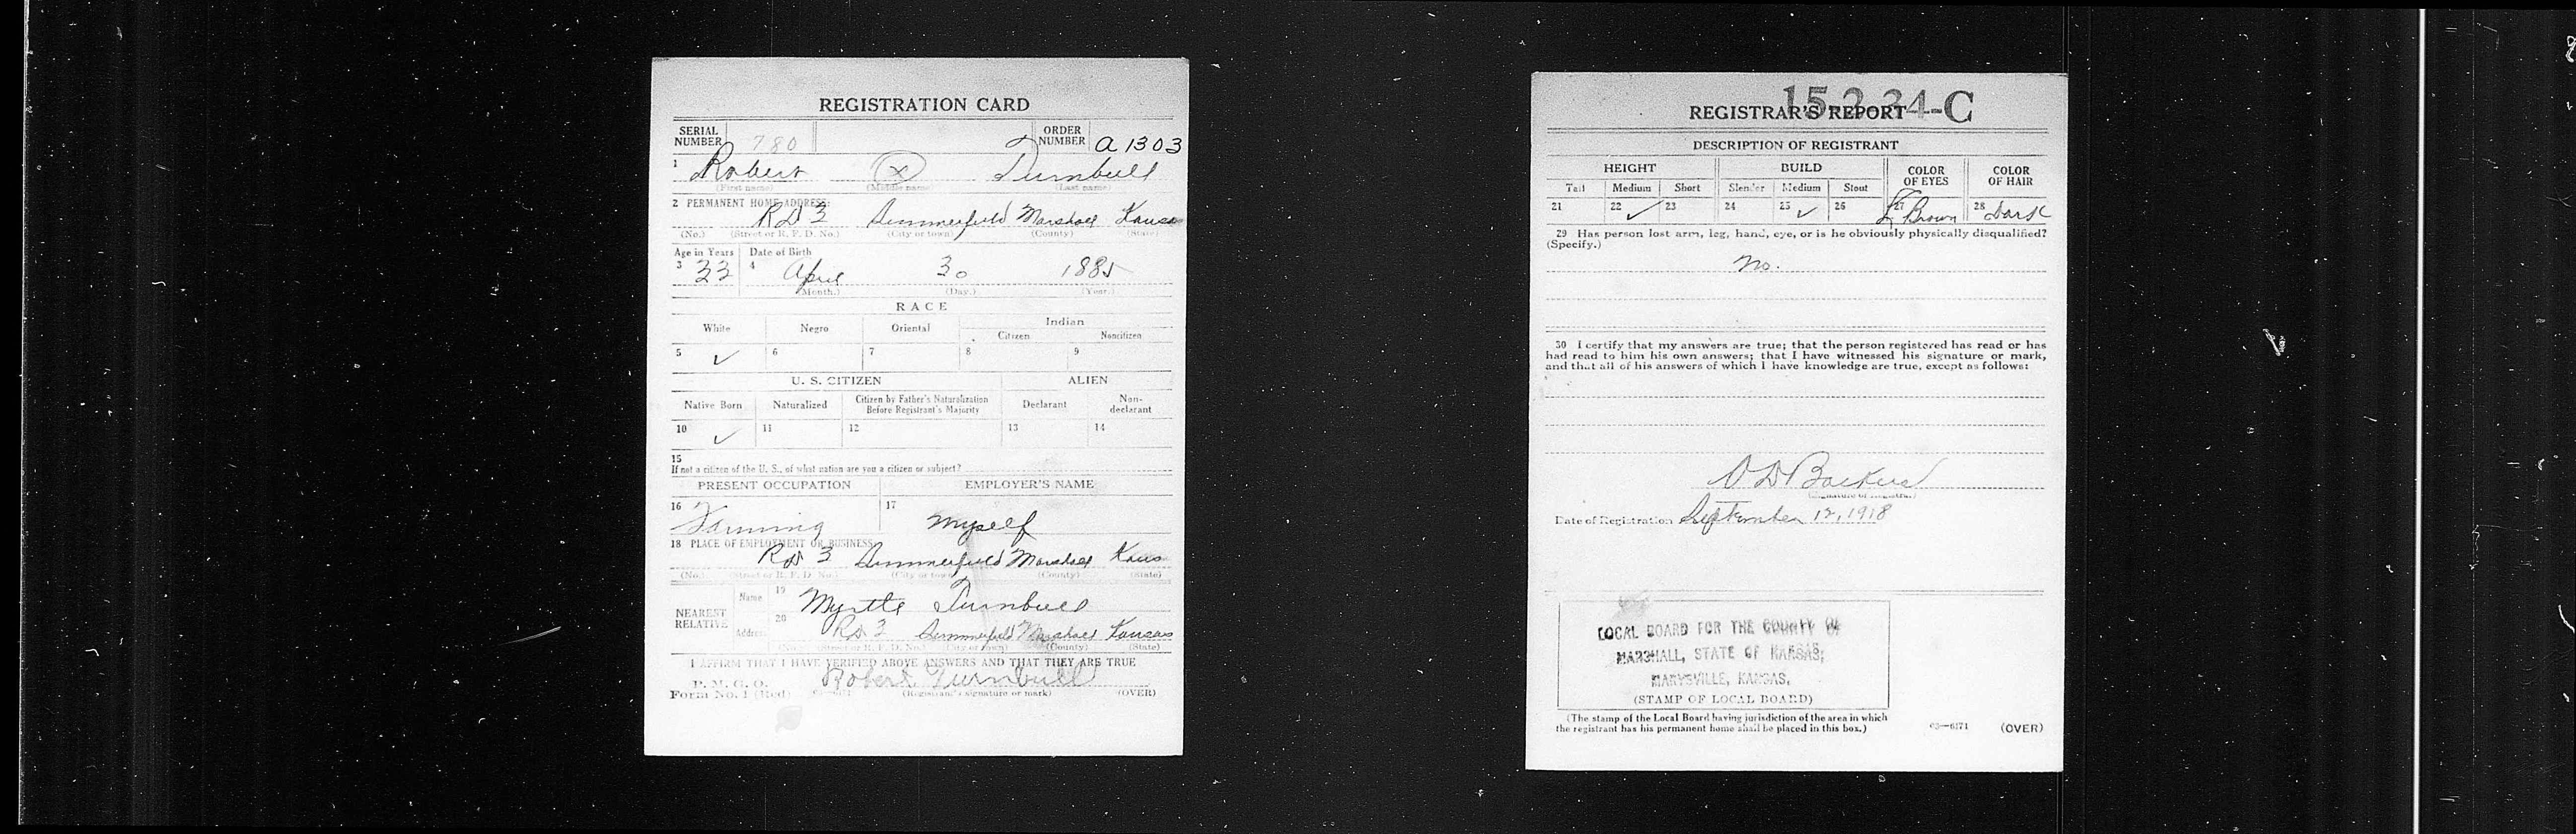 REGISTRATION CARD
SERIAL NUMBER 780 ORDER NUMBER A 1303
1 Robert (X) Turnbull
(First name) (Middle name) (Last name)
2 PERMANENT HOME ADDRESS:
RD 3 Summerfield Marshall Kansas
(No.) (Street or R. F. D. No.) (City or town) (County) (State)
Age in Years Date of Birth
3 33 4 April 30 1885
(Month.) (Day.) (Year.)
RACE
White Negro Oriental Indian
Citizen Noncitizen
5 ✓ 6 7 8 9
U. S. CITIZEN ALIEN
Native Born Naturalized Citizen by Father's Naturalization Before Registrant's Majority Declarant Non-declarant
10 ✓ 11 12 13 14
15
If not a citizen of the U. S., of what nation are you a citizen or subject?
PRESENT OCCUPATION EMPLOYER'S NAME
16 Farming 17 Myself
18 PLACE OF EMPLOYMENT OR BUSINESS:
Rd 3 Summerfield Marshall Kans
(No.) (Street or R. F. D. No.) (City or town) (County) (State)
NEAREST RELATIVE Name 19 Myrtle Turnbull
Address 20 Rd 3 Summerfield Marshall Kansas
(No.) (Street or R. F. D. No.) (City or town) (County) (State)
I AFFIRM THAT I HAVE VERIFIED ABOVE ANSWERS AND THAT THEY ARE TRUE
P. M. G. O.
Form No. 1 (Red) Robert Turnbull
(Registrant's signature or mark) (OVER)
15-3-34-C
REGISTRAR'S REPORT
DESCRIPTION OF REGISTRANT
HEIGHT BUILD COLOR OF EYES COLOR OF HAIR
Tall Medium Short Slender Medium Stout
21 22 ✓ 23 24 25 ✓ 26 27 L Brown 28 Dark
29 Has person lost arm, leg, hand, eye, or is he obviously physically disqualified?
(Specify.)
No.
30 I certify that my answers are true; that the person registered has read or has
had read to him his own answers; that I have witnessed his signature or mark,
and that all of his answers of which I have knowledge are true, except as follows:
(Signature of Registrar)
Date of Registration September 12, 1918
LOCAL BOARD FOR THE COUNTY OF
MARSHALL, STATE OF KANSAS,
MARYSVILLE, KANSAS.
(STAMP OF LOCAL BOARD)
(The stamp of the Local Board having jurisdiction of the area in which
the registrant has his permanent home shall be placed in this box.)
03—6171 (OVER)